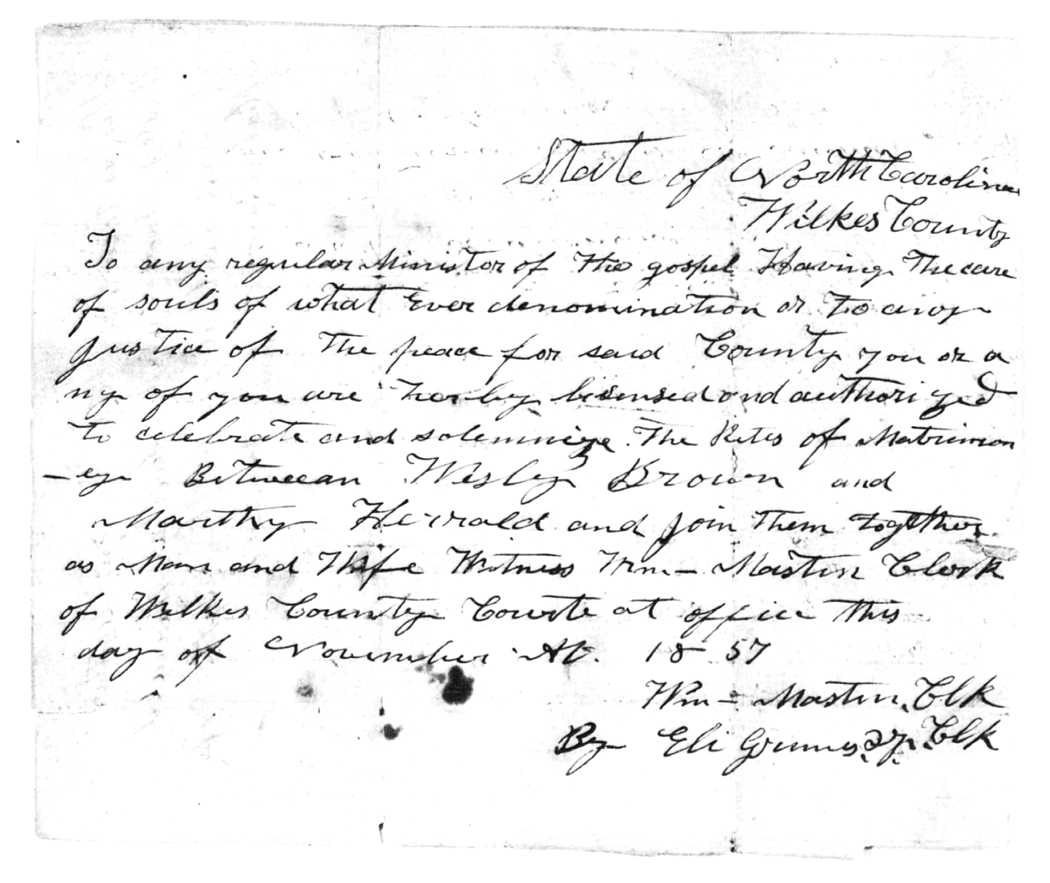 State of North Carolina
Wilkes County
To any regular Minister of the gospel Having The care
of souls of what Ever denomination or To any
Justice of The peace for said County you or a
ny of you are herby lisensed and authorized
To celebrate and solemnize The Rites of Matrimon
-ey Betweean Wesley Brown and
Marthy Herrald and join Them together
as Man and Wife Witness Wm - Mastin Clerk
of Wilkes County Courte at office this
day of November At. 1857
Wm - Mastin, Clk
By Eli Grimes, Clk